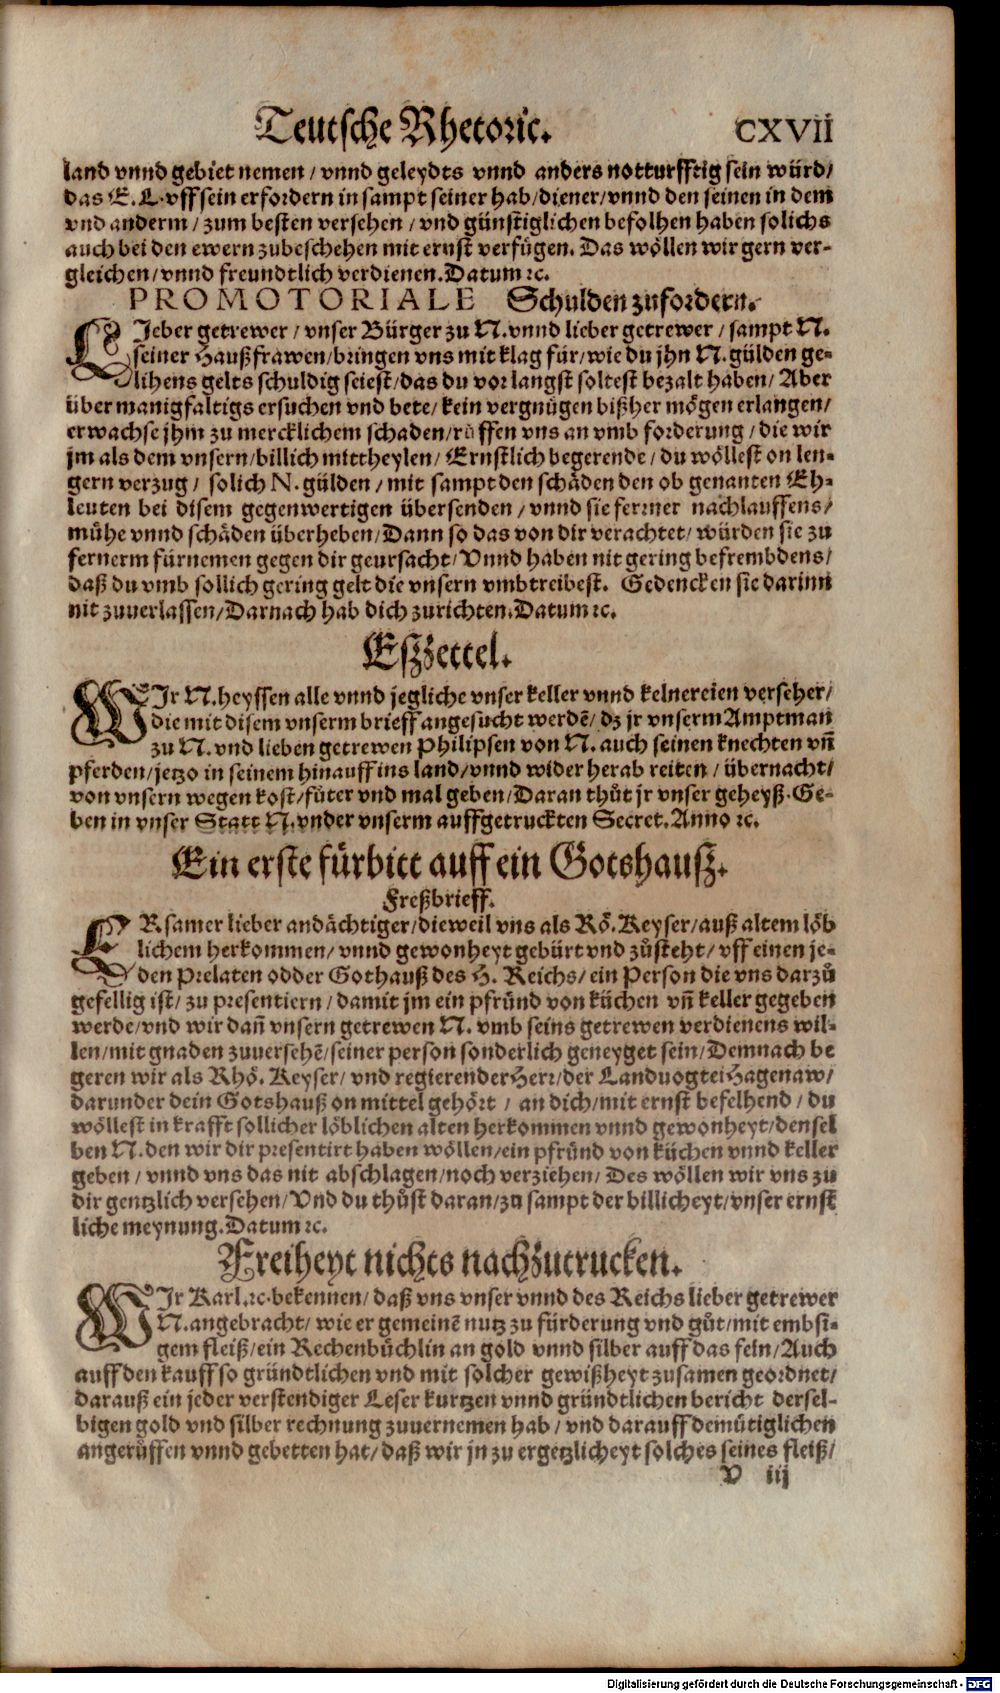 Teutsche Rhetoric. CXVII
land vnnd gebiet nemen / vnnd geleydts vnnd anders notturfftig sein würd/
das E. L. vff sein erfordern in sampt seiner hab/diener/vnnd den seinen in dem
vnd anderm / zum besten versehen / vnd günstiglichen befolhen haben solichs
auch bei den ewern zubeschehen mit ernst verfügen. Das wöllen wir gern ver-
gleichen/vnnd freundtlich verdienen. Datum ꝛc.
PROMOTORIALE Schulden zufordern.
LJeber getrewer / vnser Bürger zu N. vnnd lieber getrewer / sampt N.
seiner Haußfrawen/bringen vns mit klag für/wie du jhn N. gülden ge-
lihens gelts schuldig seiest/das du vor langst soltest bezalt haben/ Aber
über manigfaltigs ersuchen vnd bete/ kein vergnügen bißher mögen erlangen/
erwachse jhm zu mercklichem schaden/růffen vns an vmb forderung / die wir
jm als dem vnsern/billich mittheylen/ Ernstlich begerende / du wöllest on len-
gern verzug / solich N. gülden / mit sampt den schäden den ob genanten Eh-
leuten bei disem gegenwertigen übersenden / vnnd sie ferrner nachlauffens/
mühe vnnd schäden überheben/Dann so das von dir verachtet/ würden sie zu
fernerm fürnemen gegen dir geursacht/ Vnnd haben nit gering befrembdens/
daß du vmb sollich gering gelt die vnsern vmbtreibest. Gedencken sie darinn
nit zuuerlassen/Darnach hab dich zurichten. Datum ꝛc.
Eßzettel.
WJr N. heyssen alle vnnd jegliche vnser keller vnnd kelnereien verseher/
die mit disem vnserm brieff angesucht werdē/ dz jr vnserm Amptman
zu N. vnd lieben getrewen Philipsen von N. auch seinen knechten vñ
pferden/jetzo in seinem hinauff ins land/vnnd wider herab reiten / übernacht/
von vnsern wegen kost/fůter vnd mal geben/Daran thůt jr vnser geheyß. Ge-
ben in vnser Statt N. vnder vnserm auffgetruckten Secret. Anno ꝛc.
Ein erste fürbitt auff ein Gotshauß.
Freßbrieff.
ERsamer lieber andächtiger/dieweil vns als Rö. Keyser/auß altem löb
lichem herkommen/ vnnd gewonheyt gebürt vnd zůsteht/ vff einen je-
den Prelaten odder Gothauß des H. Reichs/ ein Person die vns darzů
gefellig ist/ zu presentiern / damit jm ein pfründ von küchen vñ keller gegeben
werde/vnd wir dañ vnsern getrewen N. vmb seins getrewen verdienens wil-
len/mit gnaden zuuersehē/seiner person sonderlich geneyget sein/Demnach be
geren wir als Rhö. Keyser/ vnd regierender Herr/der Landuogtei Hagenaw/
darunder dein Gotshauß on mittel gehört / an dich/mit ernst befelhend / du
wöllest in krafft sollicher löblichen alten herkommen vnnd gewonheyt/densel
ben N. den wir dir presentirt haben wöllen/ein pfründ von küchen vnnd keller
geben / vnnd vns das nit abschlagen/noch verziehen/ Des wöllen wir vns zu
dir gentzlich versehen/ Vnd du thůst daran/zu sampt der billicheyt/vnser ernst
liche meynung. Datum ꝛc.
Freiheyt nichts nachzutrucken.
WJr Karl. ꝛc. bekennen/ daß vns vnser vnnd des Reichs lieber getrewer
N. angebracht/ wie er gemeinē nutz zu fürderung vnd gůt/mit embsi-
gem fleiß/ein Rechenbüchlin an gold vnnd silber auff das feln/Auch
auff den kauff so gründtlichen vnd mit solcher gewißheyt zusamen geordnet/
darauß ein jeder verstendiger Leser kurtzen vnnd gründtlichen bericht dersel-
bigen gold vnd silber rechnung zuuernemen hab / vnd darauff demütiglichen
angerůffen vnnd gebetten hat/ daß wir jn zu ergetzlicheyt solches seines fleiß/
V iij
Digitalisierung gefördert durch die Deutsche Forschungsgemeinschaft - DFG